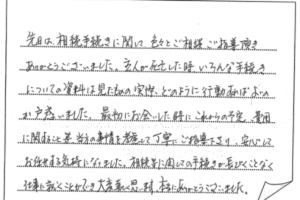 先日は、相続手続きに関して色々とご相談、ご指導頂き
ありがとうございました。主人が死亡した時、いろんな手続き
についての資料は見たものの実際、どのように行動すればよいの
か戸惑いました。最初にお会いした時にこれからの予定、費用
に関すること等、当方の事情を考慮して丁寧にご指導下さり、安心して
お任せする気持になりました。相続に関しての手続きが長びくことなく
仕事に就くことができ大変嬉しく思います。本当にありがとうございました。